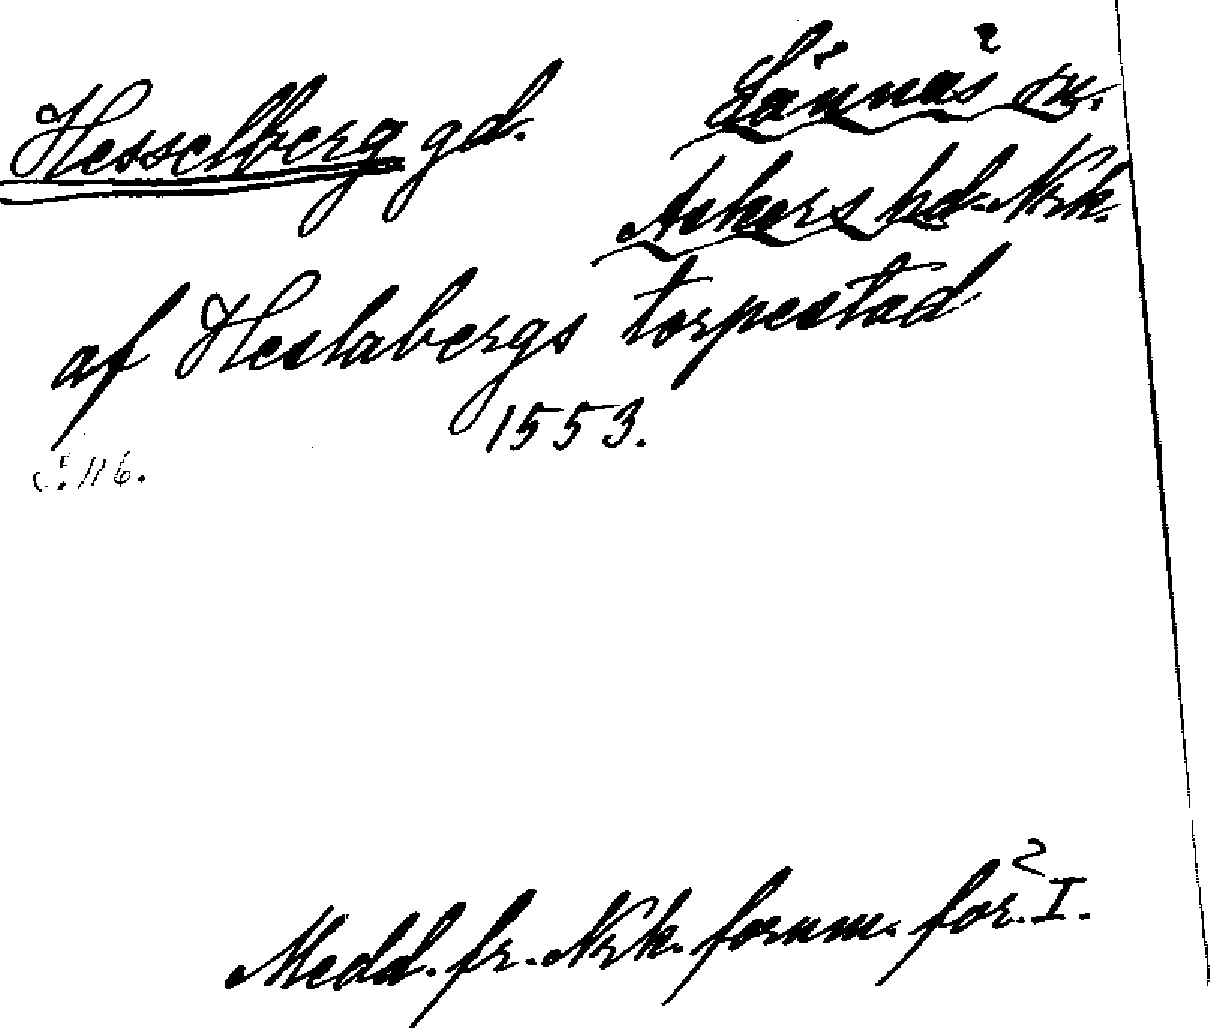 Hesselberg gd. Lännäs sn.
Askers hd. Nrk.
af Heslabergs torpestad
1553.
S. 116.
Medd. fr. Nrk. fornm. för. I.